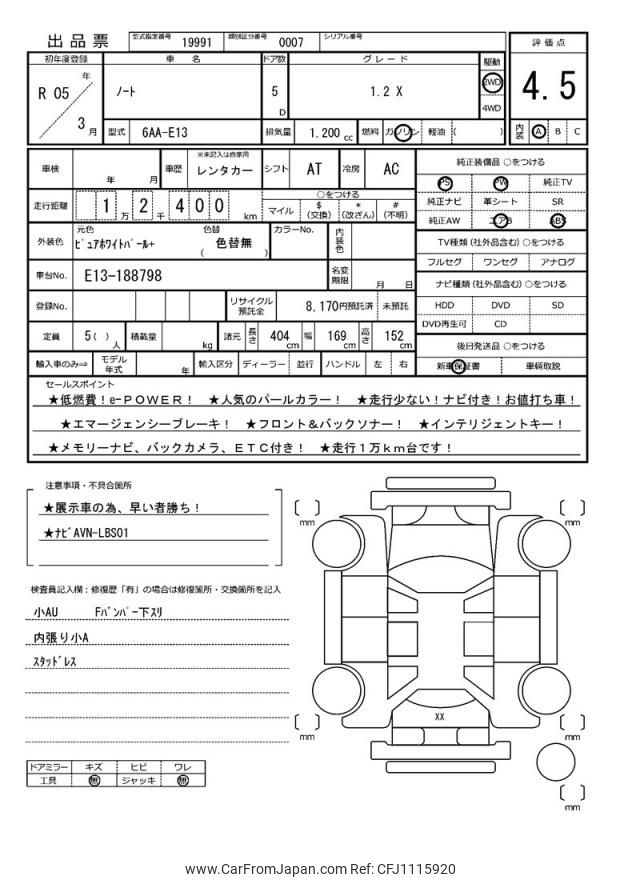 出品票 型式指定番号 19991 類別区分番号 0007 シリアル番号
評価点
4.5
内装 A B C
初年度登録 車名 ドア数 グレード 駆動
R 05 年 3 月
ノート 5 D 1.2 X 2WD 4WD
型式 6AA-E13 排気量 1.200 cc 燃料 ガソリン 軽油 ( )
車検 年 月 車歴 ※未記入は自家用 レンタカー シフト AT 冷房 AC
走行距離 1 万 2 千 4 0 0 km ○をつける
マイル $ (交換) * (改ざん) # (不明)
外装色 元色 ﾋﾟｭｱﾎﾜｲﾄﾊﾟｰﾙ+ 色替 ( 色替無 ) カラーNo. 内装色
車台No. E13-188798 名変期限 月 日
登録No. リサイクル預託金 8,170円預託済 未預託
定員 5( ) 人 積載量 kg 諸元 長さ 404 cm 幅 169 cm 高さ 152 cm
輸入車のみ⇒ モデル年式 年 輸入区分 ディーラー 並行 ハンドル 左 右
純正装備品 ○をつける
PS PW 純正TV
純正ナビ 革シート SR
純正AW エアB ABS
TV種類 (社外品含む) ○をつける
フルセグ ワンセグ アナログ
ナビ種類 (社外品含む) ○をつける
HDD DVD SD
DVD再生可 CD
後日発送品 ○をつける
新車保証書 車輌取説
セールスポイント
★低燃費！e-POWER！ ★人気のパールカラー！ ★走行少ない！ナビ付き！お値打ち車！
★エマージェンシーブレーキ！ ★フロント＆バックソナー！ ★インテリジェントキー！
★メモリーナビ、バックカメラ、ETC付き！ ★走行１万km台です！
注意事項・不具合箇所
★展示車の為、早い者勝ち！
★ﾅﾋﾞAVN-LBS01
検査員記入欄：修復歴「有」の場合は修復箇所・交換箇所を記入
小AU Fﾊﾞﾝﾊﾟｰ下ｽﾘ
内張り小A
ｽﾀｯﾄﾞﾚｽ
ドアミラー キズ ヒビ ワレ
工具 無 ジャッキ 無
mm
mm
XX
mm
mm
mm
www.CarFromJapan.com Ref: CFJ1115920